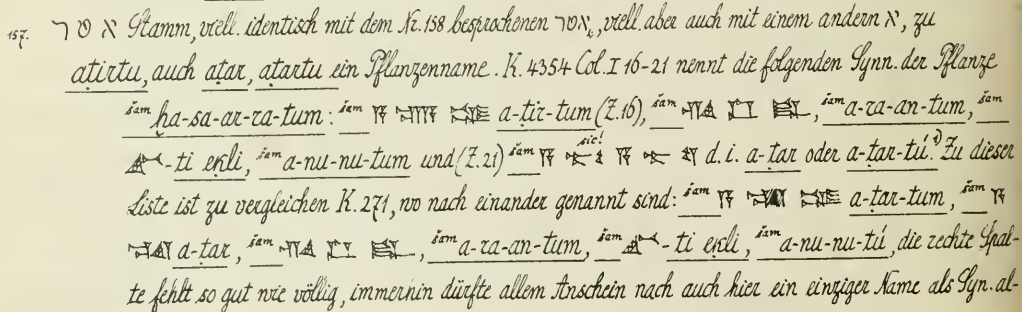 157. אטר Stamm, viell. identisch mit dem Nr. 158 besprochenen אטר, viell. aber auch mit einem andern א, zu
aṭirtu, auch aṭar, aṭartu ein Pflanzenname. K. 4354 Col. I 16-21 nennt die folgenden Synn. der Pflanze
šam ḫa-sa-ar-ra-tum: šam 𒀀 a-ṭir-tum (Z. 16), šam, šam a-ra-an-tum, šam
-ti eḳli, šam a-nu-nu-tum und (Z. 21) šam 𒀀 sic! 𒀀 d. i. a-ṭar oder a-ṭar-tú. Zu dieser
Liste ist zu vergleichen K. 271, wo nach einander genannt sind: šam 𒀀 a-ṭar-tum, šam 𒀀
a-ṭar, šam, šam a-ra-an-tum, šam -ti eḳli, šam a-nu-nu-tú, die rechte Spal-
te fehlt so gut wie völlig, immerhin dürfte allem Anschein nach auch hier ein einziger Name als Syn. al-